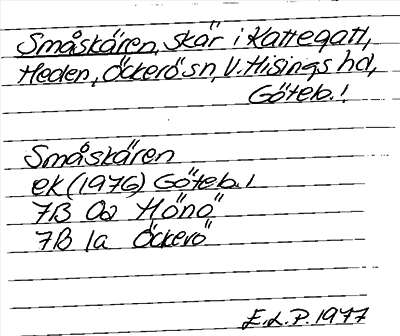 Småskären, skär i Kattegatt,
Heden, Öckerö sn, V. Hisings hd,
Göteb. l
Småskären
ek (1976) Göteb. l
7B 0a Hönö
7B 1a Öckerö
E.L.P. 1977